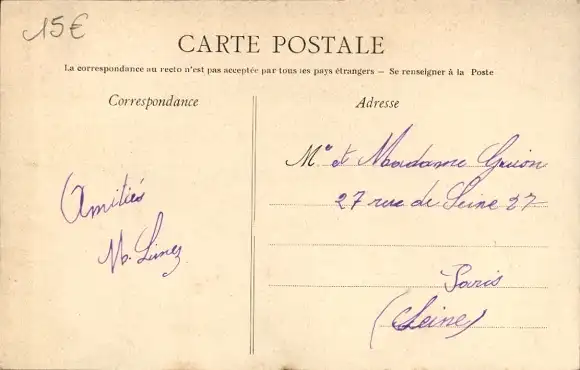 15€
CARTE POSTALE
La correspondance au recto n'est pas acceptée par tous les pays étrangers — Se renseigner à la Poste
Correspondance
Adresse
Amitiés
Mr et Madame Guion
27 rue de Seine 27
Paris
(Seine)